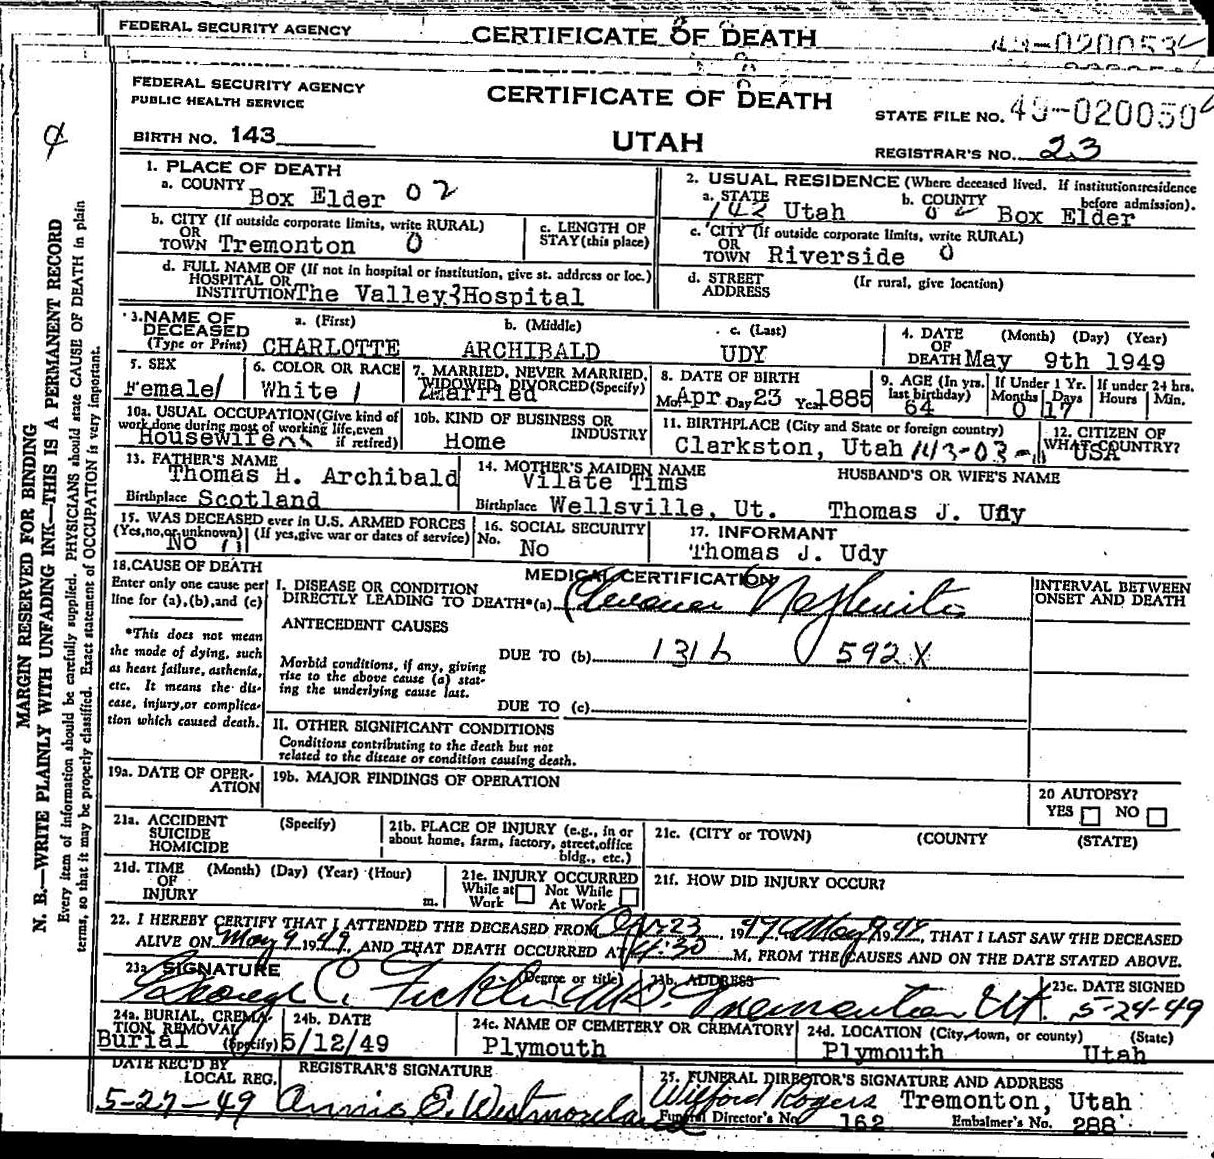 FEDERAL SECURITY AGENCY CERTIFICATE OF DEATH 49-020053
FEDERAL SECURITY AGENCY
PUBLIC HEALTH SERVICE
CERTIFICATE OF DEATH
STATE FILE NO. 49-020050
BIRTH NO. 143
UTAH
REGISTRAR'S NO. 23
MARGIN RESERVED FOR BINDING
N. B.—WRITE PLAINLY WITH UNFADING INK—THIS IS A PERMANENT RECORD
Every item of information should be carefully supplied. PHYSICIANS should state CAUSE OF DEATH in plain
terms, so that it may be properly classified. Exact statement of OCCUPATION is very important.
1. PLACE OF DEATH
a. COUNTY Box Elder 02
2. USUAL RESIDENCE (Where deceased lived. If institution: residence
before admission).
a. STATE 142 Utah b. COUNTY 02 Box Elder
b. CITY (If outside corporate limits, write RURAL)
OR
TOWN Tremonton 0
c. LENGTH OF
STAY (this place)
c. CITY (If outside corporate limits, write RURAL)
OR
TOWN Riverside 0
d. FULL NAME OF (If not in hospital or institution, give st. address or loc.)
HOSPITAL OR
INSTITUTION The Valley Hospital
d. STREET (If rural, give location)
ADDRESS
3. NAME OF
DECEASED
(Type or Print)
a. (First) b. (Middle) c. (Last)
CHARLOTTE ARCHIBALD UDY
4. DATE (Month) (Day) (Year)
OF
DEATH May 9th 1949
5. SEX
Female 1
6. COLOR OR RACE
White 1
7. MARRIED, NEVER MARRIED,
WIDOWED, DIVORCED (Specify)
Married
8. DATE OF BIRTH
Mo. Apr Day 23 Yea 1885
9. AGE (In yrs.
last birthday)
64
If Under 1 Yr.
Months Days
0 17
If under 24 hrs.
Hours Min.
10a. USUAL OCCUPATION (Give kind of
work done during most of working life, even
if retired)
Housewife
10b. KIND OF BUSINESS OR
INDUSTRY
Home
11. BIRTHPLACE (City and State or foreign country)
Clarkston, Utah 143-03-
12. CITIZEN OF
WHAT COUNTRY?
USA
13. FATHER'S NAME
Thomas H. Archibald
Birthplace Scotland
14. MOTHER'S MAIDEN NAME
Vilate Tims
Birthplace Wellsville, Ut.
HUSBAND'S OR WIFE'S NAME
Thomas J. Udy
15. WAS DECEASED ever in U.S. ARMED FORCES
(Yes, no, or unknown) (If yes, give war or dates of service)
No
16. SOCIAL SECURITY
No.
No
17. INFORMANT
Thomas J. Udy
18. CAUSE OF DEATH
Enter only one cause per
line for (a), (b), and (c)
*This does not mean
the mode of dying, such
as heart failure, asthenia,
etc. It means the dis-
ease, injury, or complica-
tion which caused death.
MEDICAL CERTIFICATION
I. DISEASE OR CONDITION
DIRECTLY LEADING TO DEATH*(a)
INTERVAL BETWEEN
ONSET AND DEATH
ANTECEDENT CAUSES
DUE TO (b) 131 b 592 X
Morbid conditions, if any, giving
rise to the above cause (a) stat-
ing the underlying cause last.
DUE TO (c)
II. OTHER SIGNIFICANT CONDITIONS
Conditions contributing to the death but not
related to the disease or condition causing death.
19a. DATE OF OPER-
ATION
19b. MAJOR FINDINGS OF OPERATION
20 AUTOPSY?
YES NO
21a. ACCIDENT (Specify)
SUICIDE
HOMICIDE
21b. PLACE OF INJURY (e.g., in or
about home, farm, factory, street, office
bldg., etc.)
21c. (CITY or TOWN) (COUNTY) (STATE)
21d. TIME (Month) (Day) (Year) (Hour)
OF
INJURY m.
21e. INJURY OCCURRED
While at Not While
Work At Work
21f. HOW DID INJURY OCCUR?
22. I HEREBY CERTIFY THAT I ATTENDED THE DECEASED FROM Apr 23, 19 49 May 9 19 49, THAT I LAST SAW THE DECEASED
ALIVE ON May 9 1949, AND THAT DEATH OCCURRED AT 4:30 M, FROM THE CAUSES AND ON THE DATE STATED ABOVE.
23a SIGNATURE (Degree or title)
George C. Ficklin M.D.
23b. ADDRESS
Tremonton Ut.
23c. DATE SIGNED
5-24-49
24a. BURIAL, CREMA-
TION, REMOVAL
(Specify)
Burial
24b. DATE
5/12/49
24c. NAME OF CEMETERY OR CREMATORY
Plymouth
24d. LOCATION (City, town, or county) (State)
Plymouth Utah
DATE REC'D BY
LOCAL REG.
5-27-49
REGISTRAR'S SIGNATURE
Annie E. Westmoreland
25. FUNERAL DIRECTOR'S SIGNATURE AND ADDRESS
Wilford Rogers Tremonton, Utah
Funeral Director's No. 162 Embalmer's No. 288